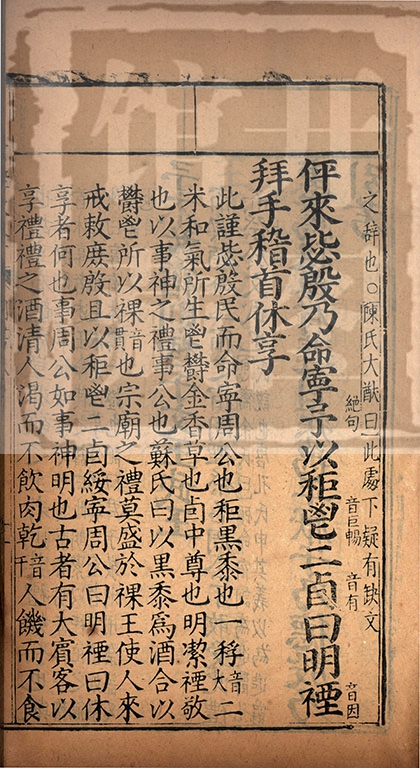 之辭也○陳氏大猷曰此處下疑有缺文
伻來毖殷乃命寧予以秬鬯二卣曰明禋
絶句
音巨暢
音有
音因
拜手稽首休享
此謹毖殷民而命寧周公也秬黑黍也一稃音二
米和氣所生鬯鬱金香草也卣中尊也明潔禋敬
也以事神之禮事公也蘇氏曰以黑黍爲酒合以
鬱鬯所以祼音貫也宗廟之禮莫盛於祼王使人來
戒敕庶殷且以秬鬯二卣綏寧周公曰明禋曰休
享者何也事周公如事神明也古者有大賓客以
享禮禮之酒清人渴而不飲肉乾音干人饑而不食